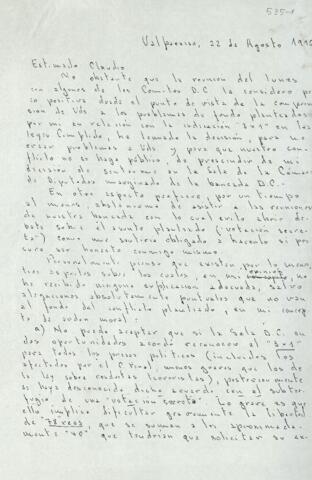 535-1
Valparaiso, 22 de Agosto 1990
Estimado Claudio
No obstante que la reunion del lunes
con algunos de los Comites D.C. la considero po
co positiva desde el punto de vista de la compren
sion de Uds a los problemas de fondo planteados
por mi en relación con la indicación "3x1" en los
legos Cumplido, he tomado la decisión para no
crear problemas a Uds. y para que nuestro con
flicto no se haga público, de prescindir de mi
decision de sentarme en la Sala de la Cámara
de Diputados marginado de la bancada D.C.-
En otro aspecto prefiero, por un tiempo
al menos, abstenerme de asistir a las reuniones
de nuestra bancada con lo cual evito abrir de-
bate sobre el asunto planteado (votación secre-
ta) como me sentiria obligado a hacerlo si pre
sumo ser honesto conmigo mismo.
Personalmente pienso que existen por lo menos
tres aspectos sobre los cuales, en mi opinion, no
he recibido ninguna explicacion adecuada, salvo
alegaciones absolutamente puntuales que no van
al fondo del conflicto planteado, en mi concep
to de orden moral:
a) No puedo aceptar que si la Sala D.C. en
dos oportunidades acordo reconocer el "3x1"
para todos los presos politicos (incluidos los
afectados por el C. Penal, menos graves que los de
la ley sobre conductas terroristas), posteriormente
se haya desconocido dicho acuerdo, con el subter-
fugio de una "votación secreta". Lo grave es que
ello implica dificultar gravemente la libertad
de 78 reos que se suman a los aproximada-
mente "40" que tendrian que solicitar su ex-